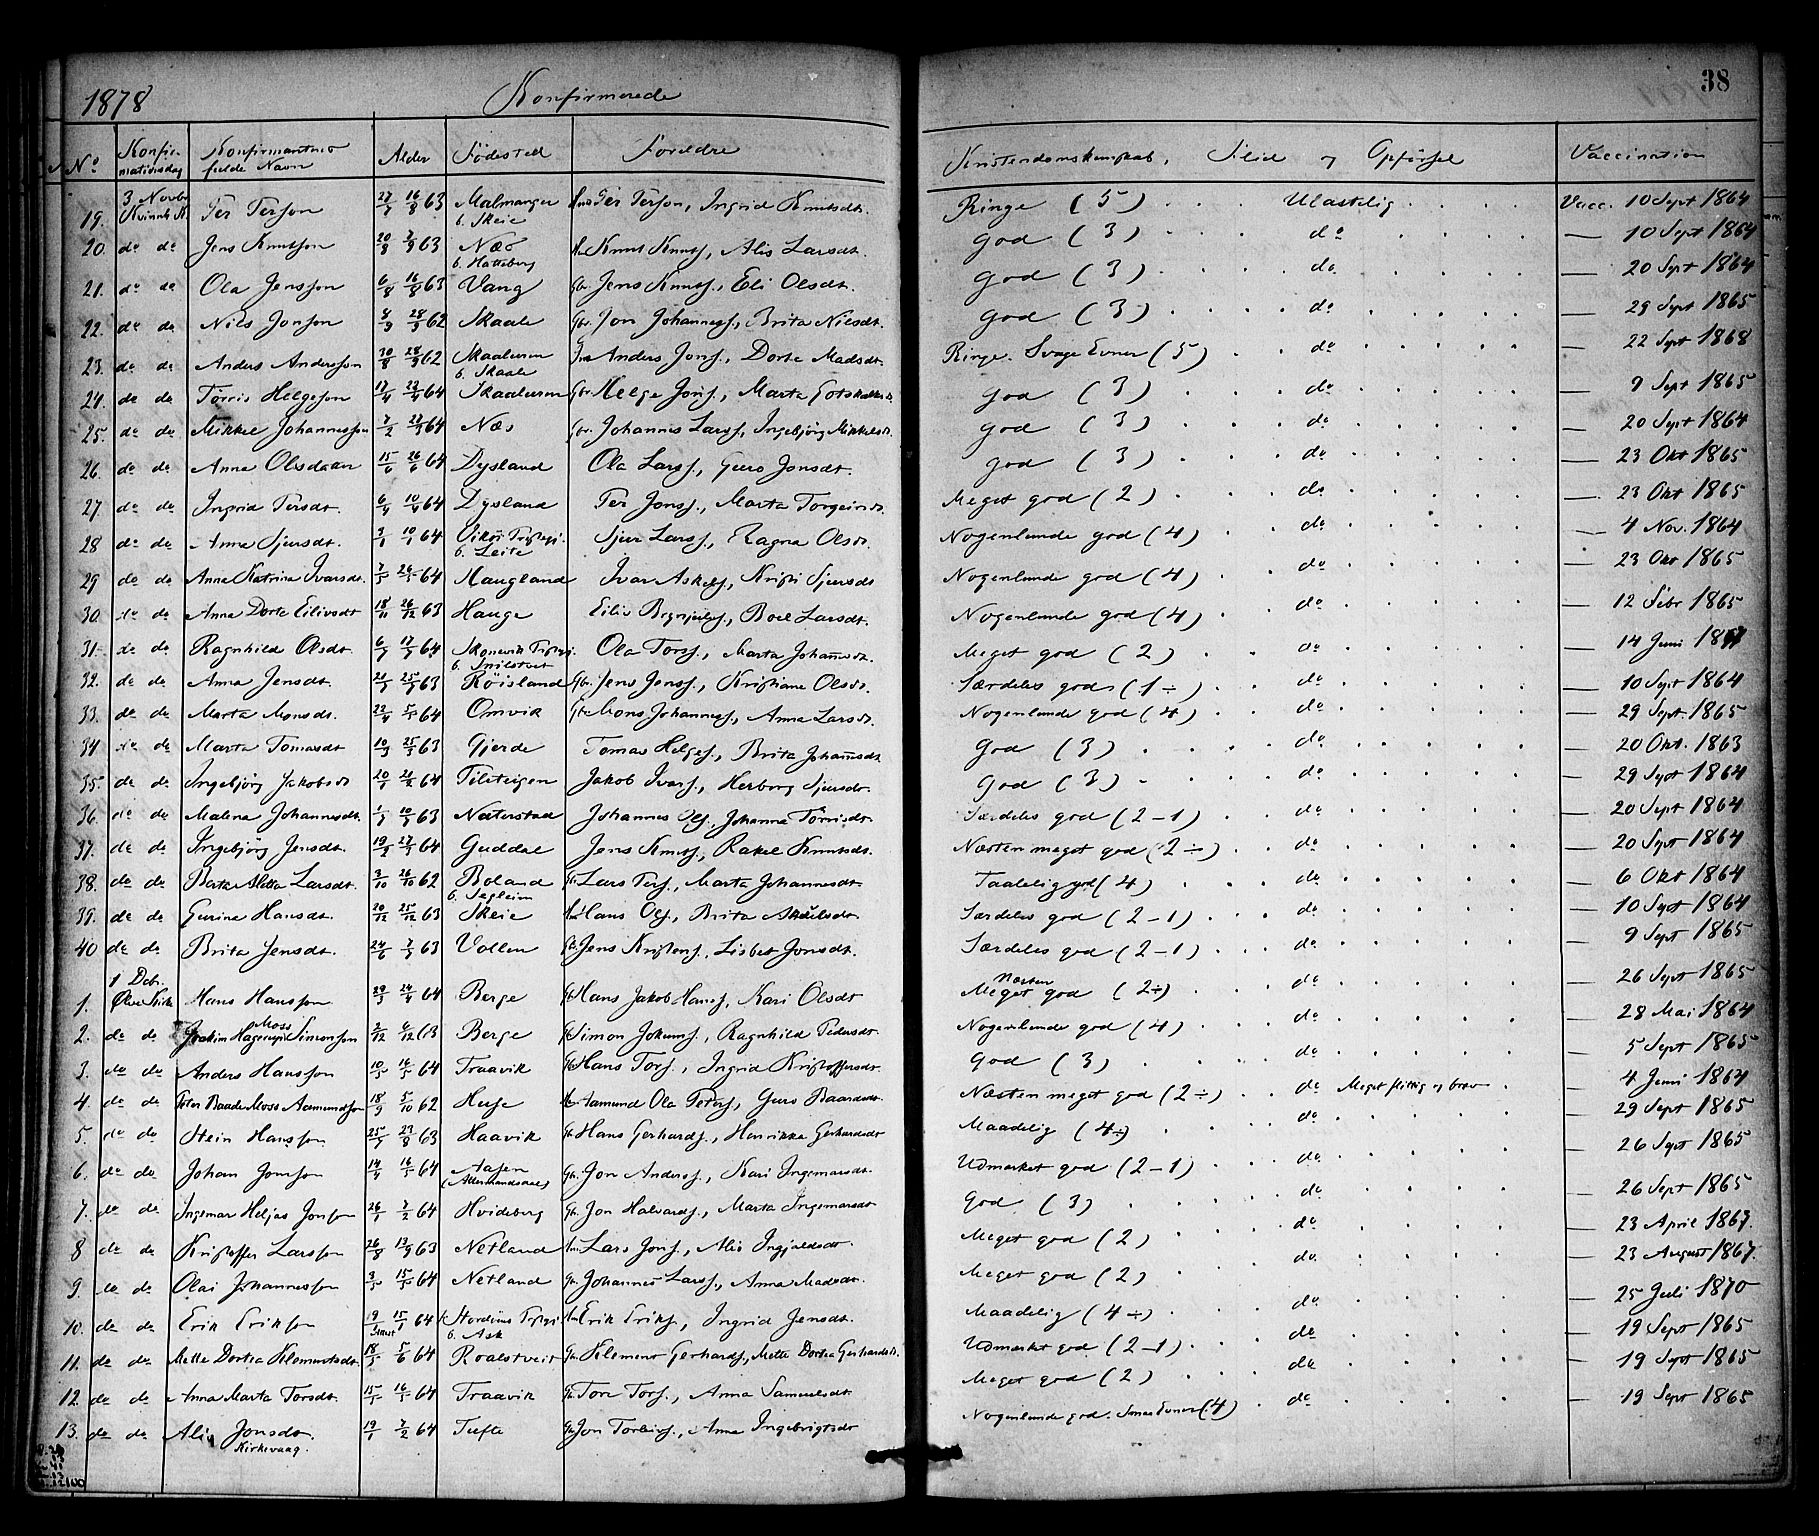 1878 Konfirmerede 38
No Konfirmationsdag Konfirmanternes fulde Navn Alder Födested Forældre Kristendomskundskab, Flid og Opförsel Vaccination
3 Novbr
19. Kvinnh. K. Per Person 27/7 16/8 63 Malmanger b. Skeie Per Person, Ingrid Knutsdt. Ringe (5) Ulastelig Vacc. 10 Sept 1864
20. do do Jens Knutson 20/8 7/9 63 Næs b. Hatteberg Knut Knuts., Alis Larsdt. God (3) do — 10 Sept 1864
21. do do Ola Jensson 6/8 16/8 63 Vang Gbr. Jens Knuts., Eli Olsdt. God (3) do — 20 Sept 1864
22. do do Nils Jonson 8/9 28/9 62 Skaale Gbr. Jon Johanness., Brita Nilsdt. God (3) do — 29 Sept 1865
23. do do Anders Andersson 30/8 28/9 62 Skaaluren b. Skaale Anders Jons., Dorte Madsdt. Ringe. Svage Evner (5) do — 22 Sept 1868
24. do do Törris Helgeson 17/4 24/4 64 Skaaluren Gbr. Helge Jons., Marta Gotskalksdt. God (3) do — 9 Sept 1865
25. do do Mikkel Johannesson 7/2 64 Næs Gbr. Johannes Larss., Ingebjörg Mikkelsdt. God (3) do — 20 Sept 1864
26. do do Anna Olsdatter 15/6 26/6 64 Dysland Ola Larss., Guro Jonsdt. God (3) do — 23 Okt 1865
27. do do Ingrid Persdt. 6/4 10/4 64 Dysland Per Jons., Marta Torgeirsdt. Meget god (2) do — 23 Okt 1865
28 do do Anna Sjursdt. 3/1 10/1 64 Vikör Prstgj. b. Leite Sjur Larss., Ragna Olsdt. Nogenlunde god (4) do — 4 Nov. 1864
29 do do Anna Katrina Ivarsdt. 7/5 64 Haugland Ivar Askels., Kristi Sjursdt Nogenlunde god (4) do — 23 Okt 1865
30. do do Anna Dorte Eilivsdt 18/11 26/12 63 Hauge Eiliv Brynjulvs., Boel Larsdt. Nogenlunde god (4) do — 12 Febr 1865
31. do do Ragnhild Olsdt. 6/7 17/7 64 Skonevik Prstgj. b. Milstvet Ola Tors., Marta Johansdt. Meget god (2) do — 14 Juni
32. do do Anna Jensdt. 63 Röisland Gbr. Jens Jenss., Kristiane Olsdt. Særdeles god (1÷) do — 10 Sept 1864
33. do do Marta Monsdt. 5/5 64 Omvik Gbr. Mons Johanness., Anna Larsdt. Nogenlunde god (4) do — 29 Sept. 1865
34 do do Marta Tomasdt 10/3 25/3 63 Gjerde Tomas Helges., Brita Johansdt. God (3) do — 20 Okt. 1863
35. do do Ingebjörg Jakobsdt 64 Fitesteigen Jakob Ivars., Herborg Sjursdt. God (3) do — 29 Sept 1864
36. do do Malena Johannesdt. 10/5 63 Næterstad Johannes Ols., Johanna Törrisdt. Særdeles god (2-1) do — 20 Sept 1864
37. do do Ingebjörg Jensdt. 64 Guddal Jens Knuts., Rakel Knutsdt. Næsten meget god (2÷) do — 20 Sept 1864
38. do do Berta Aletta Larsdt. 3/10 26/10 62 Boland b. Sagleim Lars Pers., Marta Johannesdt. Taalelig god (4) do — 6 Okt 1864
39. do do Gurina Hansdt. 20/12 25/12 63 Skeie Hans Ols., Brita Askelsdt. Særdeles god (2-1) do — 10 Sept 1864
40 do do Brita Jensdt. 24/6 63 Vollen Gbr. Jens Kristens., Lisbet Jonsdt. Særdeles god (2-1) do — 9 Sept 1865
1 Debr.
1. Ölve Kirke Hans Hansson 29/3 24/4 64 Berge Gbr. Hans Jakob Hanss., Kari Olsdt Næsten Meget god (2÷) do — 26 Sept 1865
2. do do Joakim Hagerup Moss Simonsson 2/12 6/12 63 Berge Gbr. Simon Jokums., Ragnhild Pedersdt. Nogenlunde god (4) do — 28 Mai 1864
3. do do Anders Hansson 10/5 16/5 64 Traavik Gbr. Hans Tors., Ingrid Kristoffersdt. God (3) do — 5 Sept 1865
4. do do Peter Baade Moss Aamundsson 18/9 5/10 62 Huse Aamund Ola Peders., Guro Baardsdt. Næsten meget god (2÷) do Meget flittig og brav — 4 Juni 1864
5. do do Stein Hansson 25/7 23/8 63 Haavik Gbr. Hans Gerhards., Henrikka Gerhardsdt Maadelig (4÷) do — 29 Sept 1865
6. do do Johan Jonsson 14/4 16/5 64 Aasen (Aakermandsaas) Gbr. Jon Anders., Kari Ingemarsdt. Udmærket god (2-1) do — 26 Sept 1865
7. do do Ingemar Heljas Jonsson 26/1 7/2 64 Hvideberg Gbr. Jon Halvards., Marta Ingemarsdt God (3) do — 26 Sept 1865
8 do do Kristoffer Larsson 26/8 13/9 63 Netland Lars Jons., Alis Ingjaldsdt. Meget god (2) do — 23 April 1867.
9. do do Olai Johannesson 3/5 15/5 64 Netland Gbr. Johannes Larss., Anna Madsdt. Meget god (2) do — 23 August 1867.
10. do do Erik Erikson 19/1 15/1 64 Stordöens Prstgj. b. Ask Erik Eriks., Ingrid Jensdt. Maadelig (4÷) do — 25 Juli 1870
11. do do Mette Dortea Klementsdt. 18/5 5/6 64 Roaldstveit Gbr. Klement Gerhards., Mette Dortea Gerhardsdt. Udmærket god (2-1) do — 19 Sept 1865
12. do do Anna Marta Torsdt. 15/5 16/5 64 Traavik Gbr. Tore Tors., Anna Samuelsdt. Meget god (2) do — 19 Sept 1865
13. do do Alis Jonsdt. Kirkevaag. 19/1 7/2 64 Tufte Gbr. Jon Torleivs., Anna Ingebrigtsdt Nogenlunde god. Smaa Evner (4) do — 19 Sept 1865